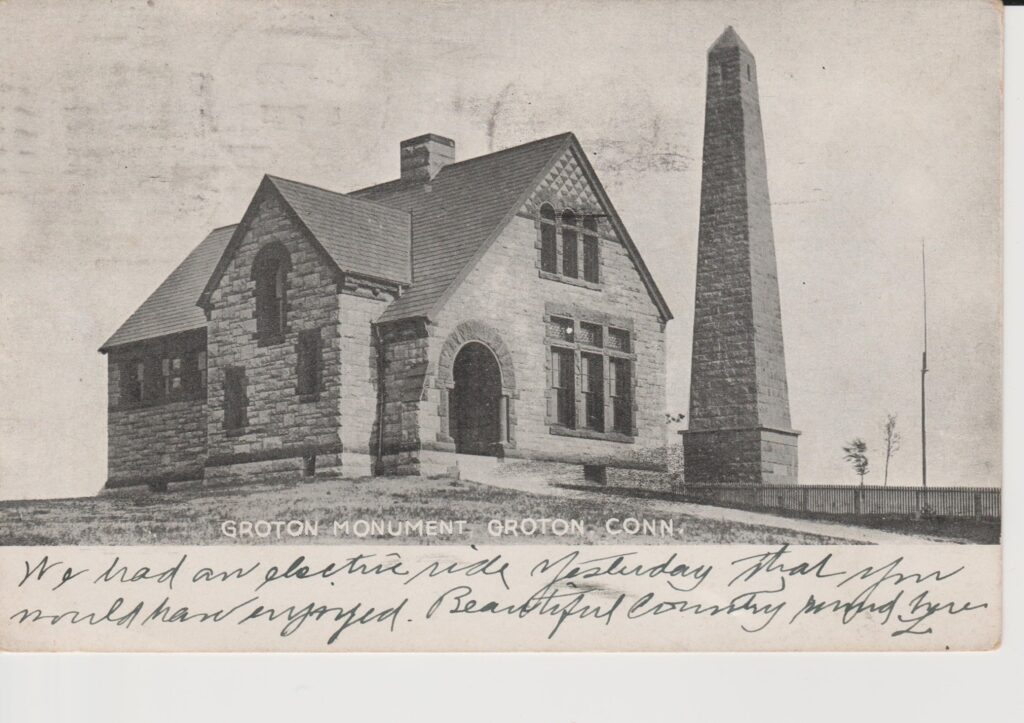 GROTON MONUMENT, GROTON, CONN.
We had an electric ride Yesterday that you
would have enjoyed. Beautiful Country round here